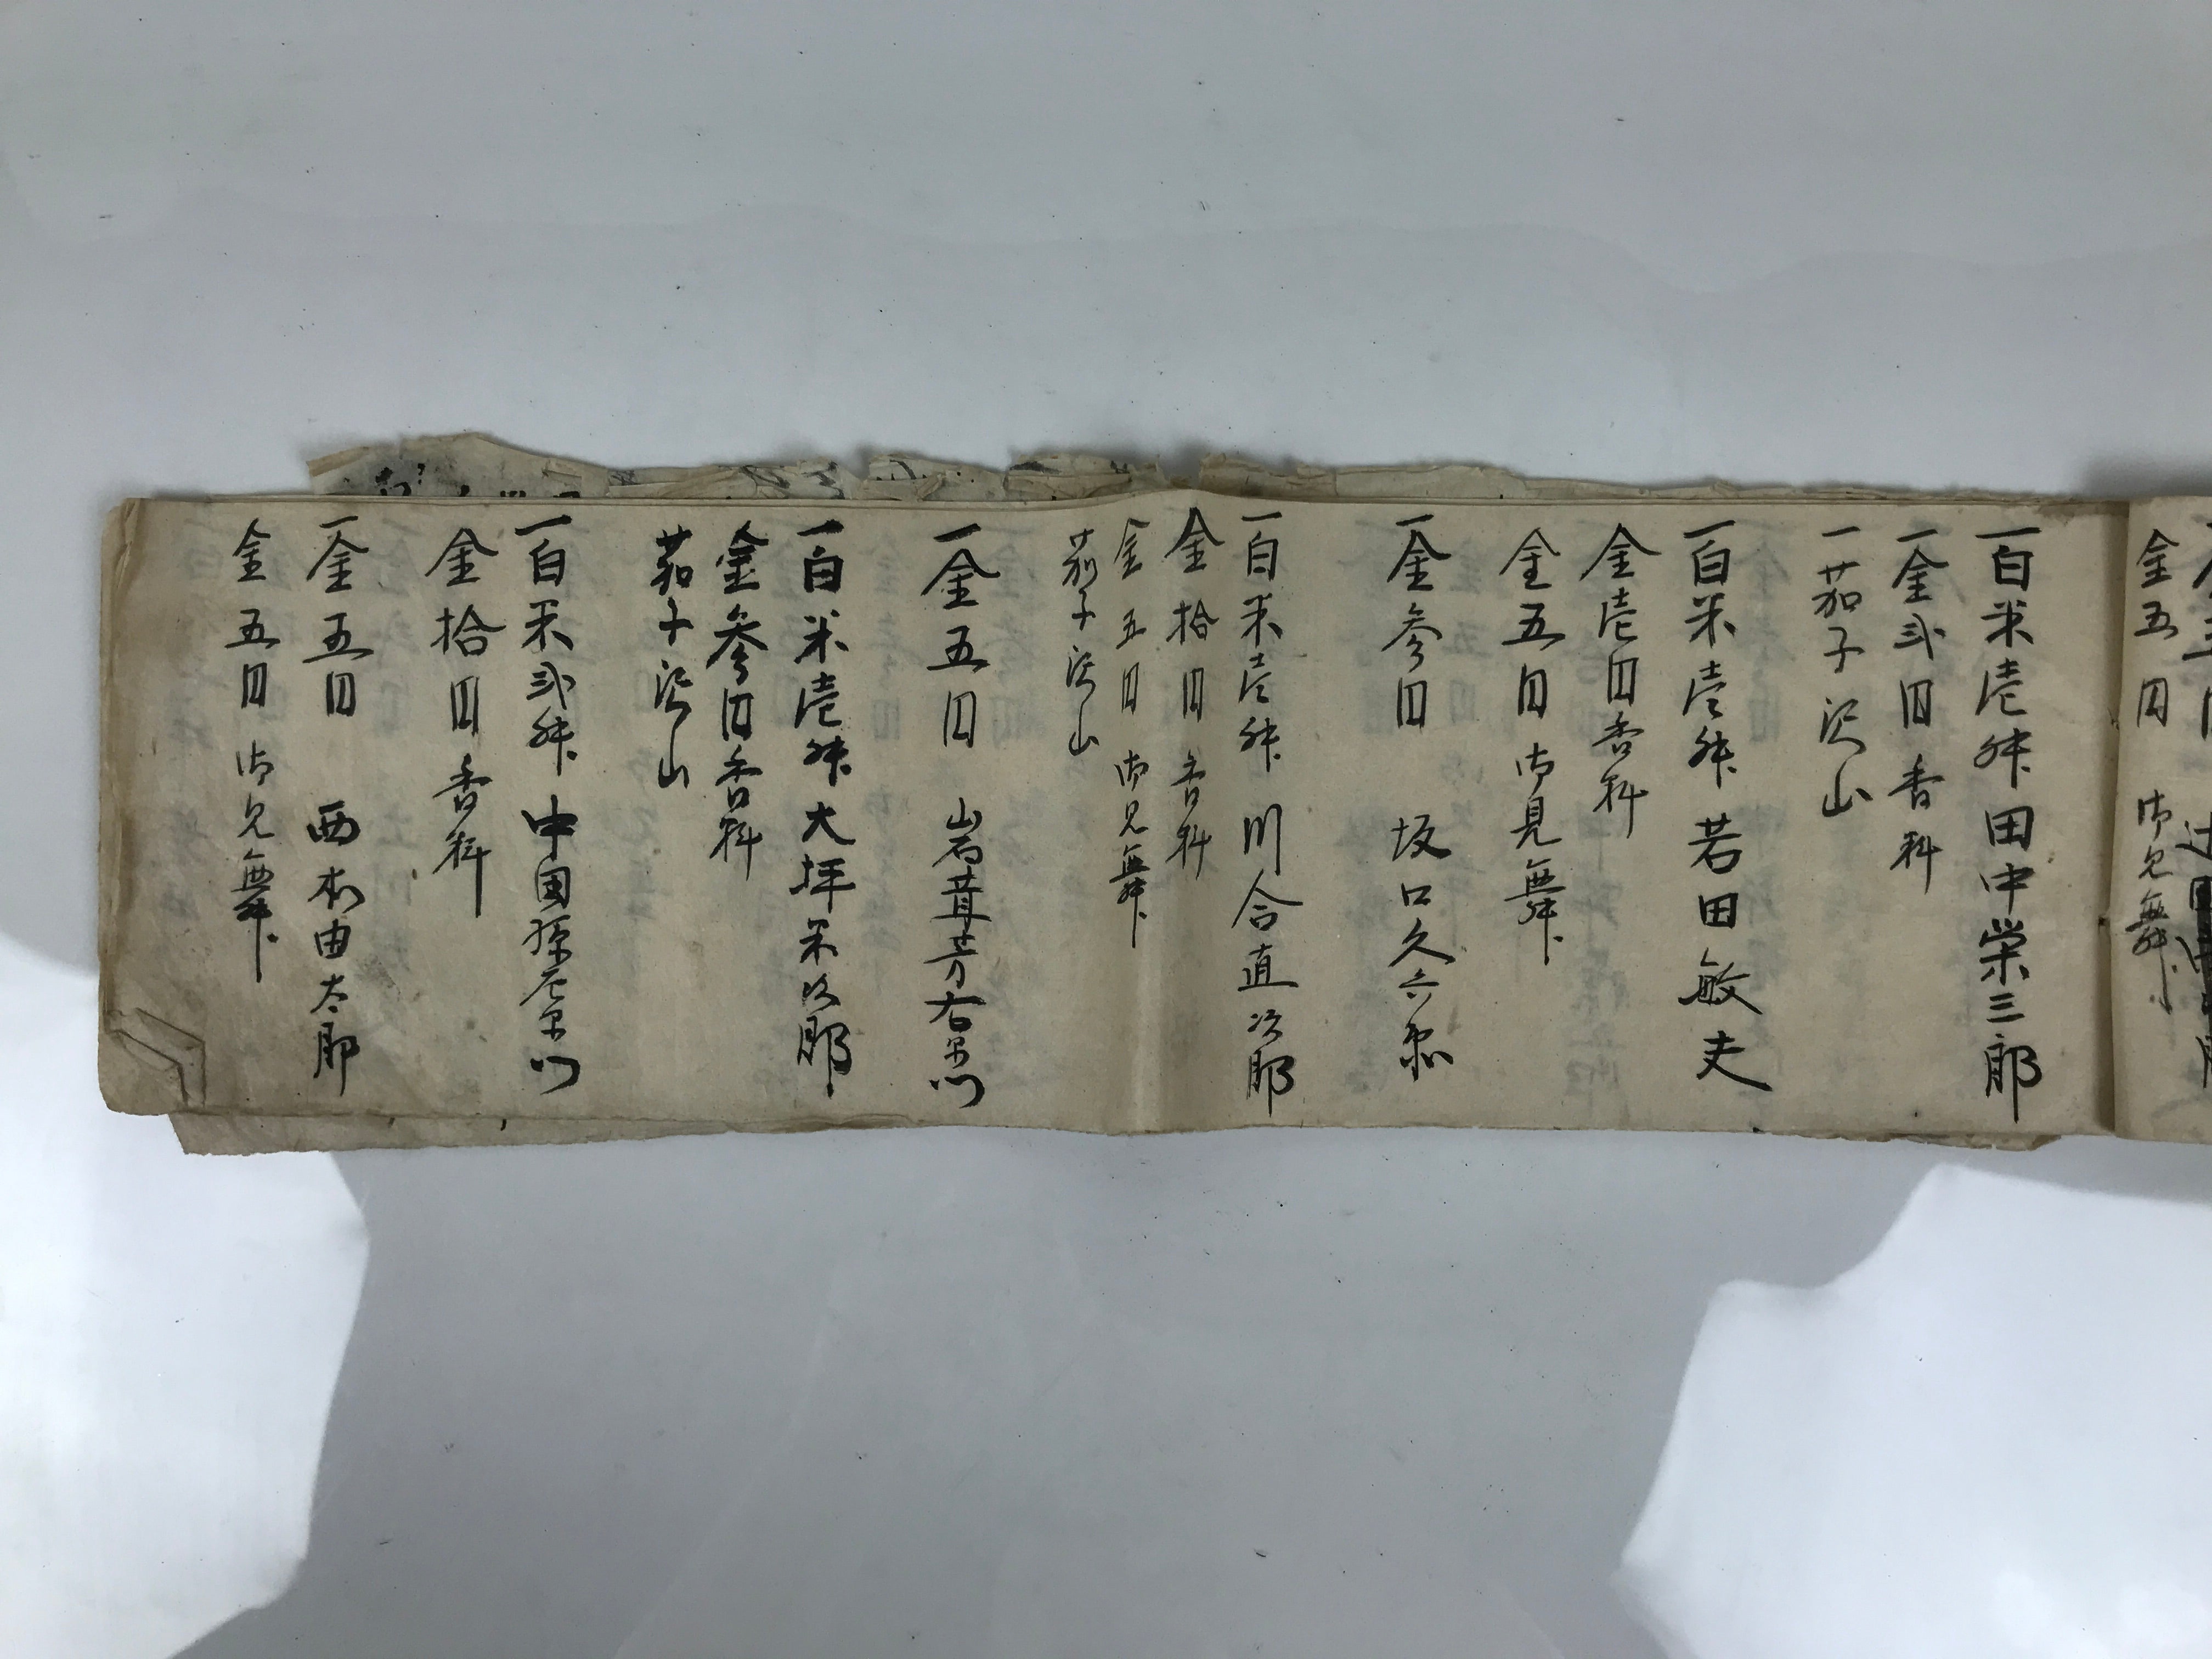 金五円 御見舞
一白米壱舛 田中栄三郎
一金弐円香料
一茄子沢山
一白米壱舛 若田敏夫
金壱円香料
金五円 御見舞
一金参円 坂口久六
一白米壱舛 川合直次郎
金拾円 香料
金五円 御見舞
茄子沢山
一金五円 岩茸芳右衛門
一白米壱舛 大坪米次郎
金参円香料
茄子沢山
一白米弐舛 中国孫左衛門
金拾円 香料
一金五円 西本由太郎
金五円 御見舞